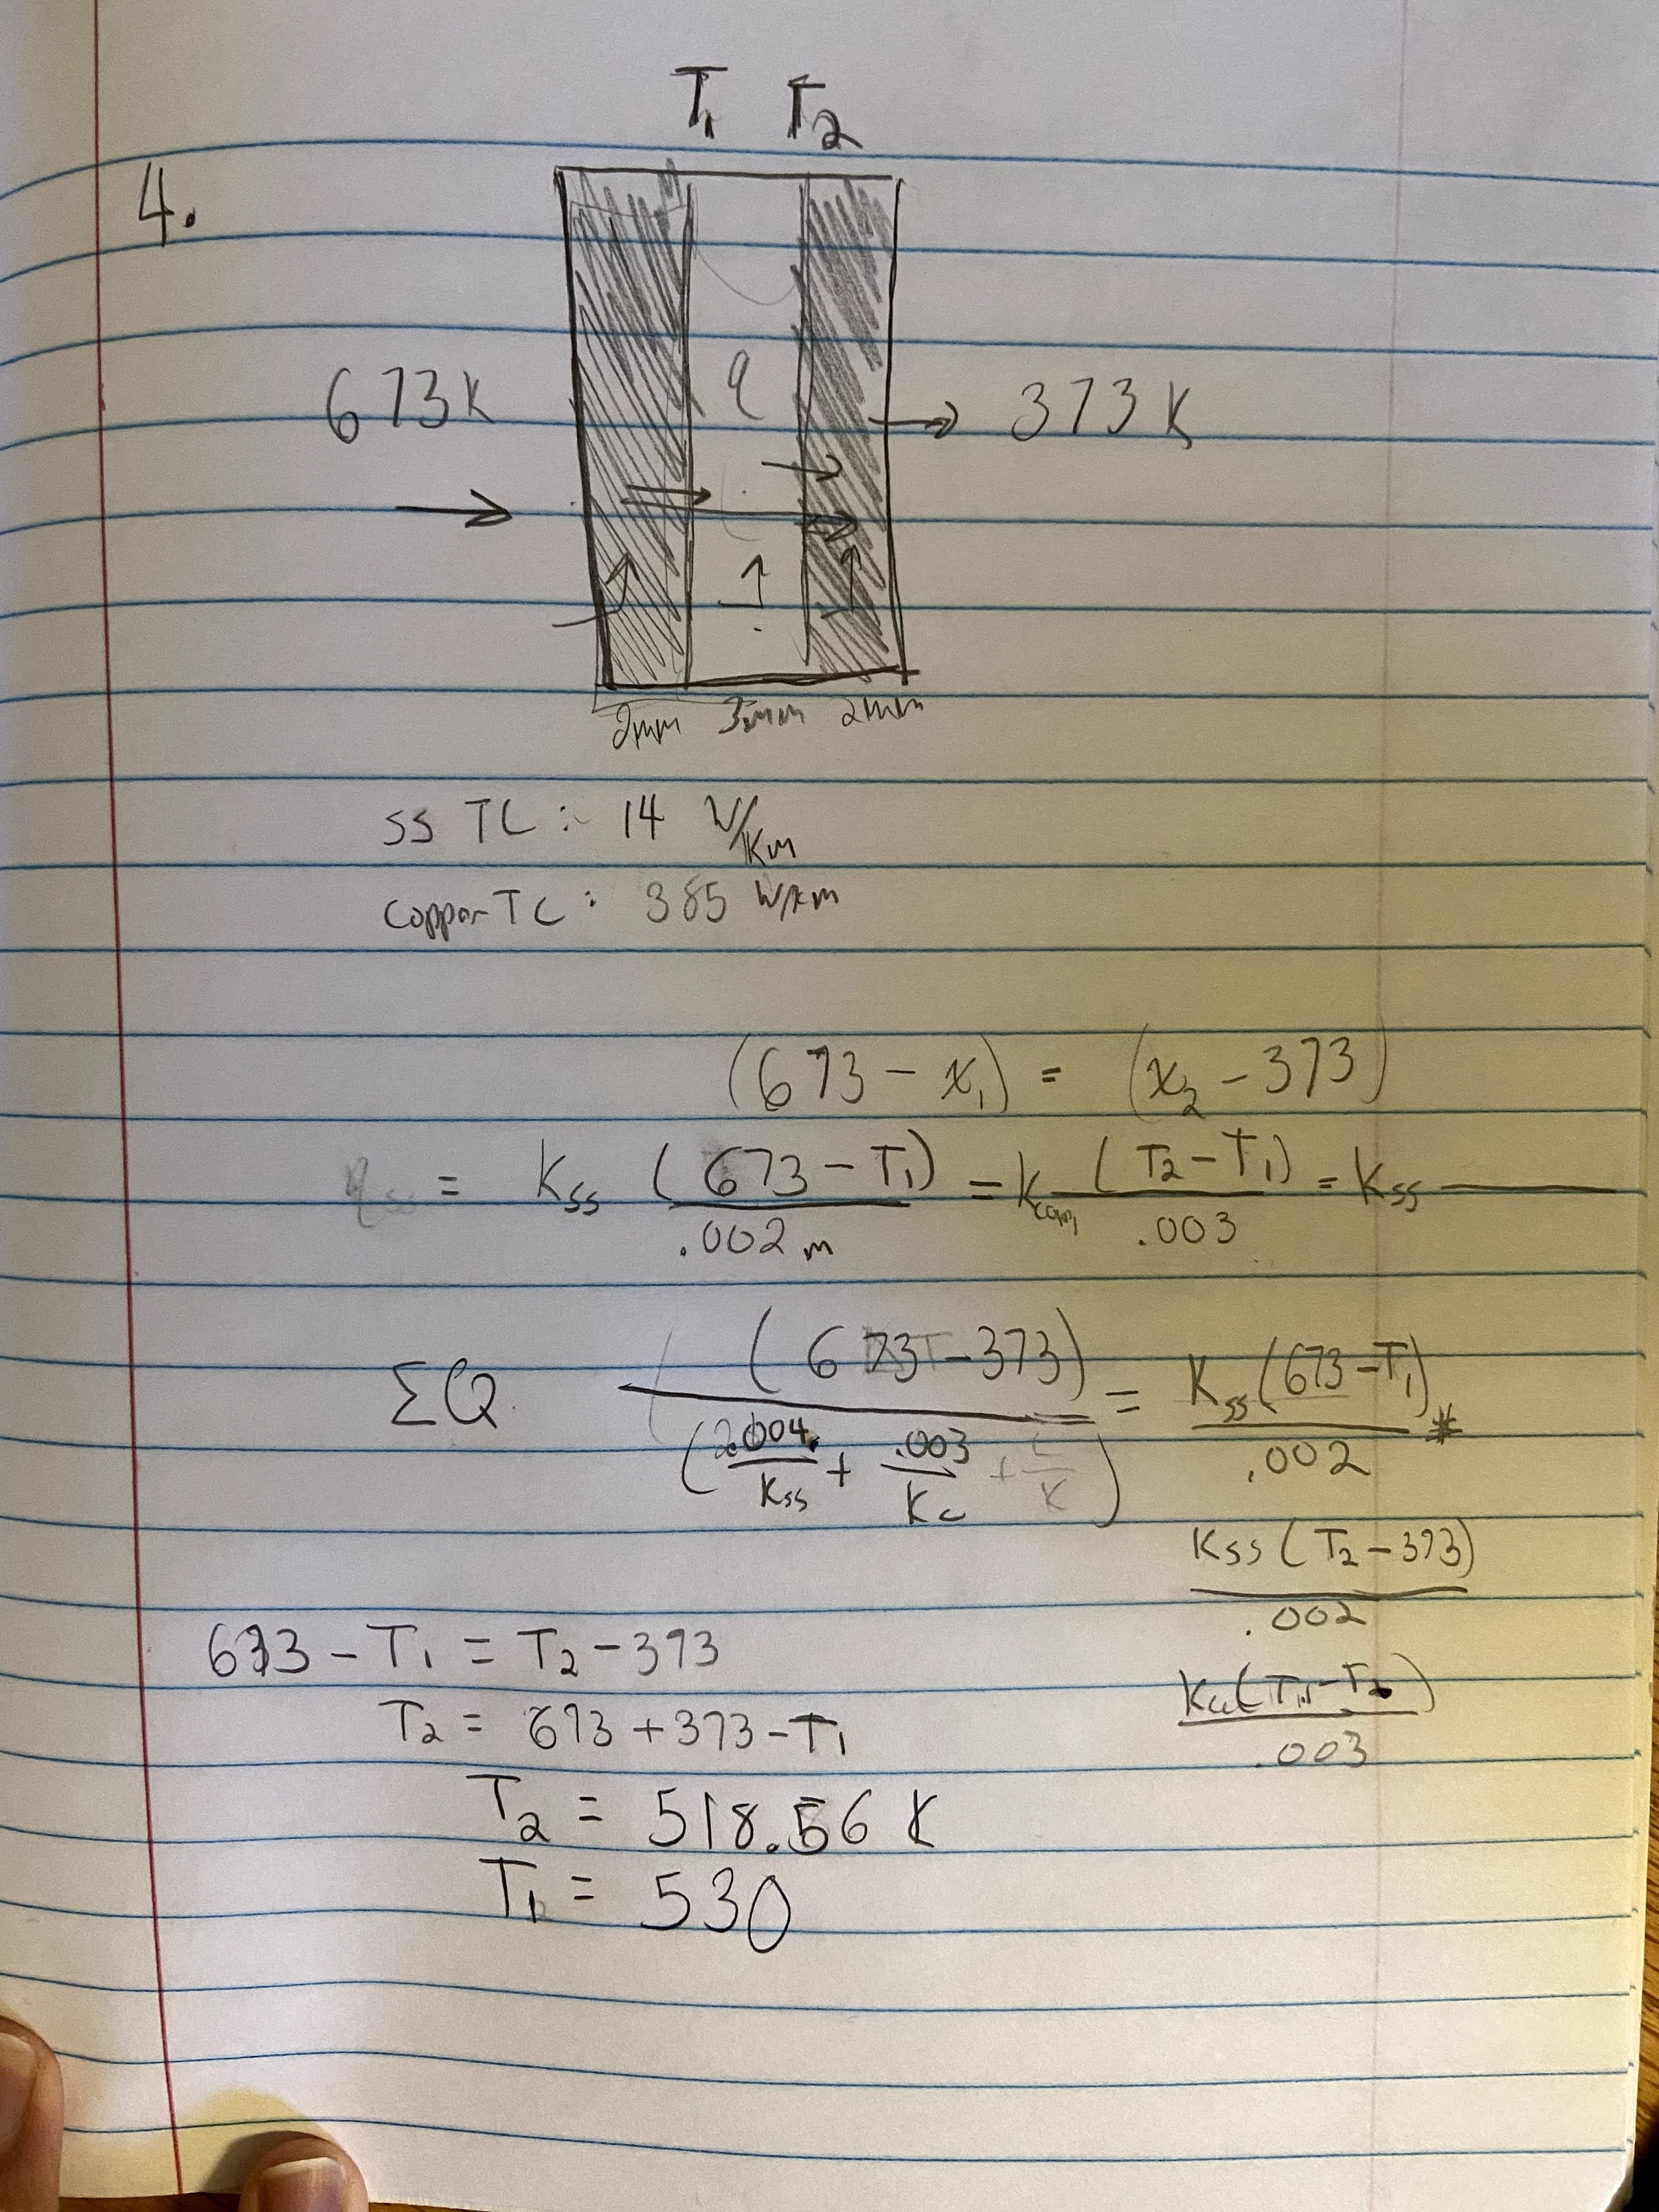 T₁ T₂
4.
q
673K → 373K
2mm 3mm 2mm
SS TC : 14 W/Km
Copper TC : 385 W/Km
(673 - x₁) = (x₂ - 373)
q_ss = K_ss (673 - T₁)/.002m = K (T₂ - T₁)/.003 = K_ss ———
ΣQ (673 - 373)/(.004/K_ss + .003/K_c + L/K) = K_ss(673 - T₁)/.002 *
K_ss(T₂ - 373)/.002
673 - T₁ = T₂ - 373
K_c(T₁ - T₂)/.003
T₂ = 673 + 373 - T₁
T₂ = 518.56 K
T₁ = 530